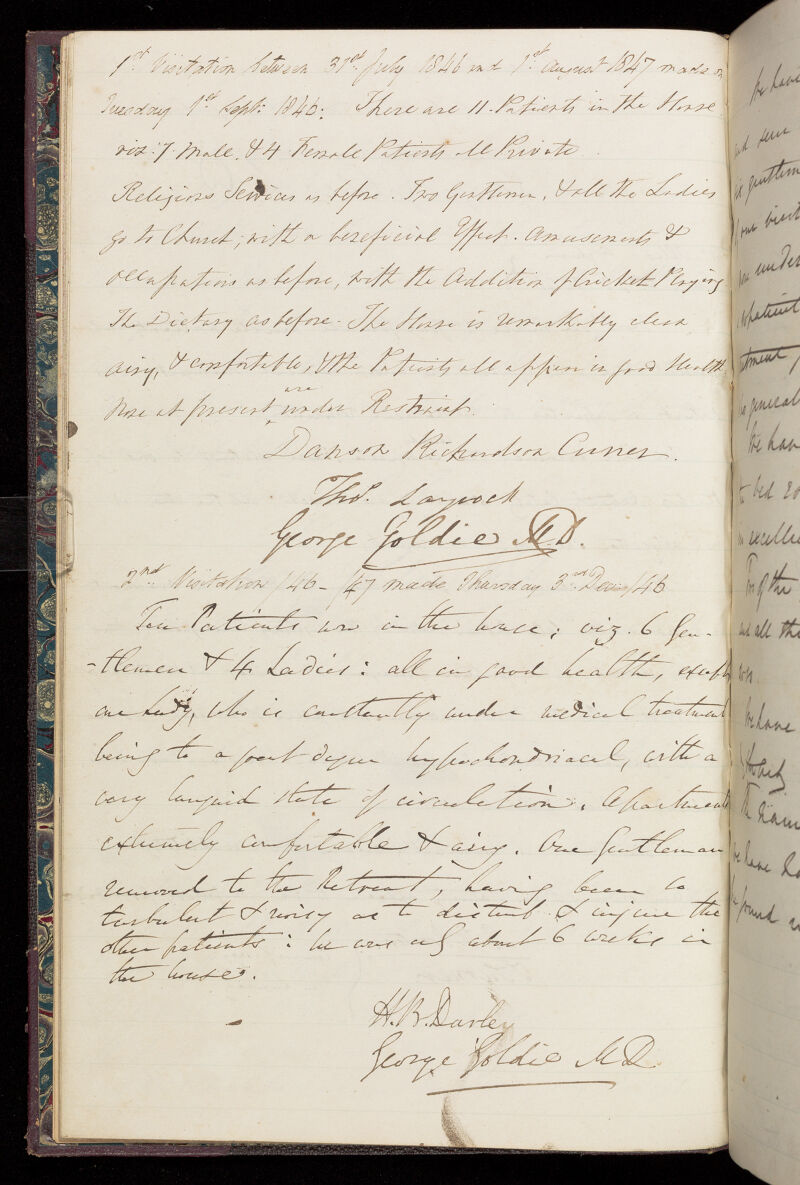 1st Visitation between 31st July 1846 and 1st August 1847 made on
Tuesday 1st Sept: 1846: There are 11 Patients in the House
viz: 7 Male. & 4 Female Patients all Private
Religious Services as before. Two Gentlemen, & all the Ladies
go to Church; with a beneficial Effect. Amusements &
occupations as before, with the Addition of Cricket Playing
The Dietary as before. The House is remarkably clean
airy, & comfortable, & the Patients all appear in good Health
None at present are under Restraint.
Danson Richardson Currer.
Thos. Laycock
George Goldie M.D.
2nd Visitation /46 - /47 made Thursday 3rd Decr /46
Ten Patients are in the house; viz. 6 Gen-
-tlemen & 4 Ladies: all in good health, except
one Lady, who is constantly under medical treatment
being to a great degree hypochondriacal, with a
very languid state of circulation. Apartments
extremely comfortable & airy. One gentleman
removed to the Retreat, having been so
turbulent & noisy as to disturb & injure the
other patients: he was only about 6 weeks in
the house.
H. B. Darley
George Goldie M D.
We have
and seen
six gentlem
of our visit
under
patient
general
We have
to bed
in excelle
of the
and all the
We have
the nam
We have
found